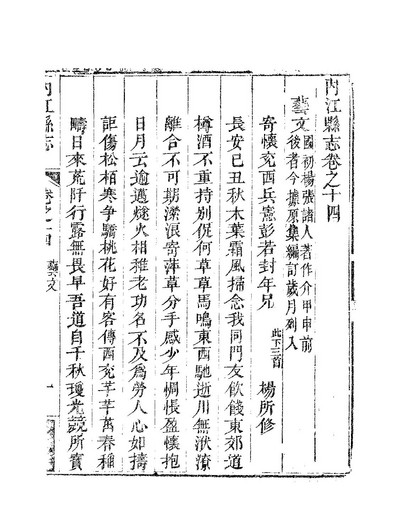 內江縣志卷之十四
藝文
國初楊張諸人著作介甲申前
後者今據原集編訂歲月列入
寄懷兗西兵憲彭若封年兄
此下三首
楊所修
長安已丑秋木葉霜風掃念我同門友飲餞東郊道
樽酒不重持別促何草草馬鳴東西馳逝川無洑潦
離合不可期濼浪寄萍草分手感少年惆悵盈懷抱
日月云逾邁燧火相推老功名不及為勞人心如擣
詎傷松柏寒爭驕桃花好有客傳西兗芊芊萬春稻
疇日來荒阡行露無畏早吾道自千秋瓊光競所寶
內江縣志
卷之十四
藝文
一